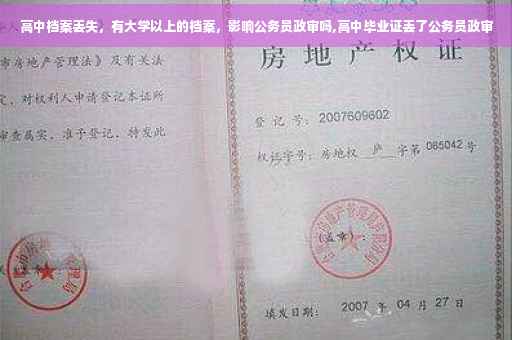 高中档案丢失，有大学以上的档案，影响公务员政审吗,高中毕业证丢了公务员政审
市房地产管理法》及有关法
定，对权利人申请登记本证所
审查属实，准予登记，特发此
房地产权证
登记号：2007609602
权证字号：房地权 庐 字第 085042 号
(盖章)：
填发日期：2007 年 04 月 27 日